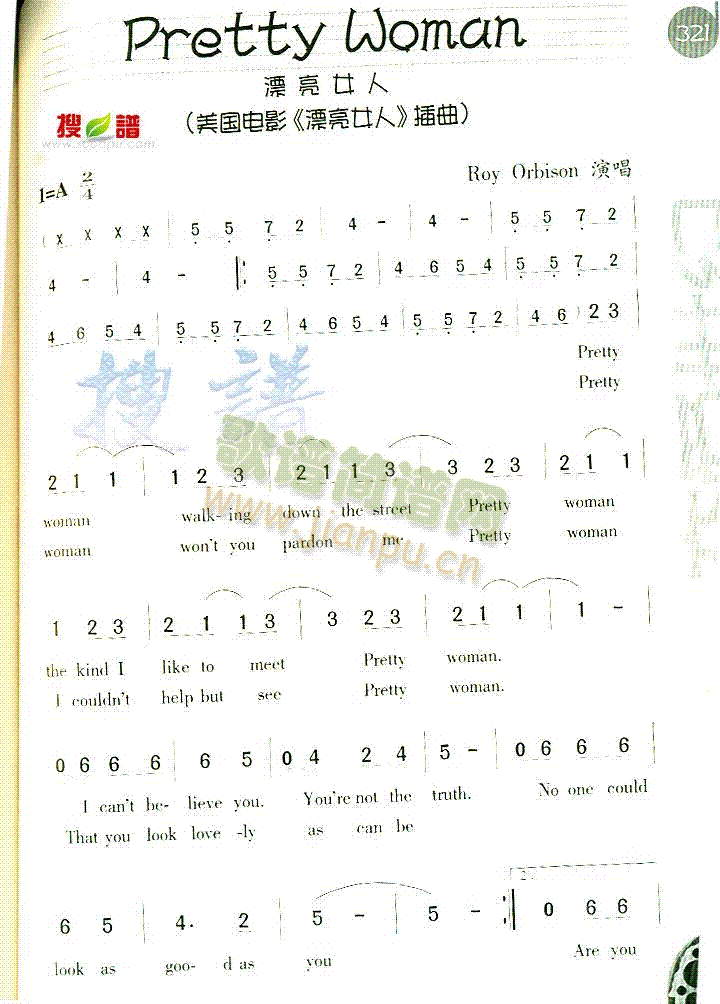 Pretty Woman
321
漂亮女人
(美国电影《漂亮女人》插曲)
搜 譜
www.sooopu.com
1=A 2/4
Roy Orbison 演唱
( x x x x | 5 5 7 2 | 4 - | 4 - | 5 5 7 2
4 - | 4 - ‖: 5 5 7 2 | 4 6 5 4 | 5 5 7 2
4 6 5 4 | 5 5 7 2 | 4 6 5 4 | 5 5 7 2 | 4 6 ) 2 3
Pretty
Pretty
搜 譜
歌谱简谱网
www.jianpu.cn
2 1 1 | 1 2 3 | 2 1 1 3 | 3 2 3 | 2 1 1
woman walk- ing down the street Pretty woman
woman won't you pardon me Pretty woman
1 2 3 | 2 1 1 3 | 3 2 3 | 2 1 1 | 1 -
the kind I like to meet Pretty woman.
I couldn't help but see Pretty woman.
0 6 6 6 | 6 5 | 0 4 2 4 | 5 - | 0 6 6 6
I can't be- lieve you. You're not the truth. No one could
That you look love -ly as can be
6 5 | 4. 2 | 5 - | 5 - :‖ 2. 0 6 6
look as goo- d as you Are you